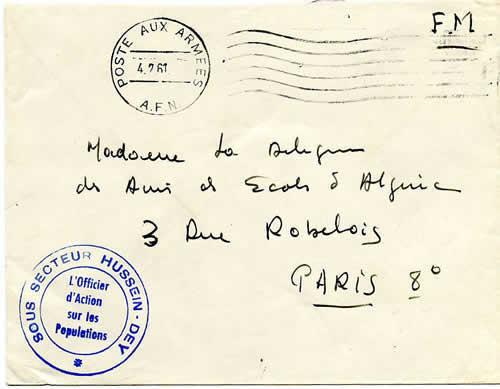 F.M
POSTE AUX ARMEES
4.2 61
A.F.N
Madame La
des Amis de Ecoles d'Algérie
3 Rue Robelois
PARIS 8°
SOUS SECTEUR HUSSEIN-DEY
L'Officier
d'Action
sur les
Populations
*